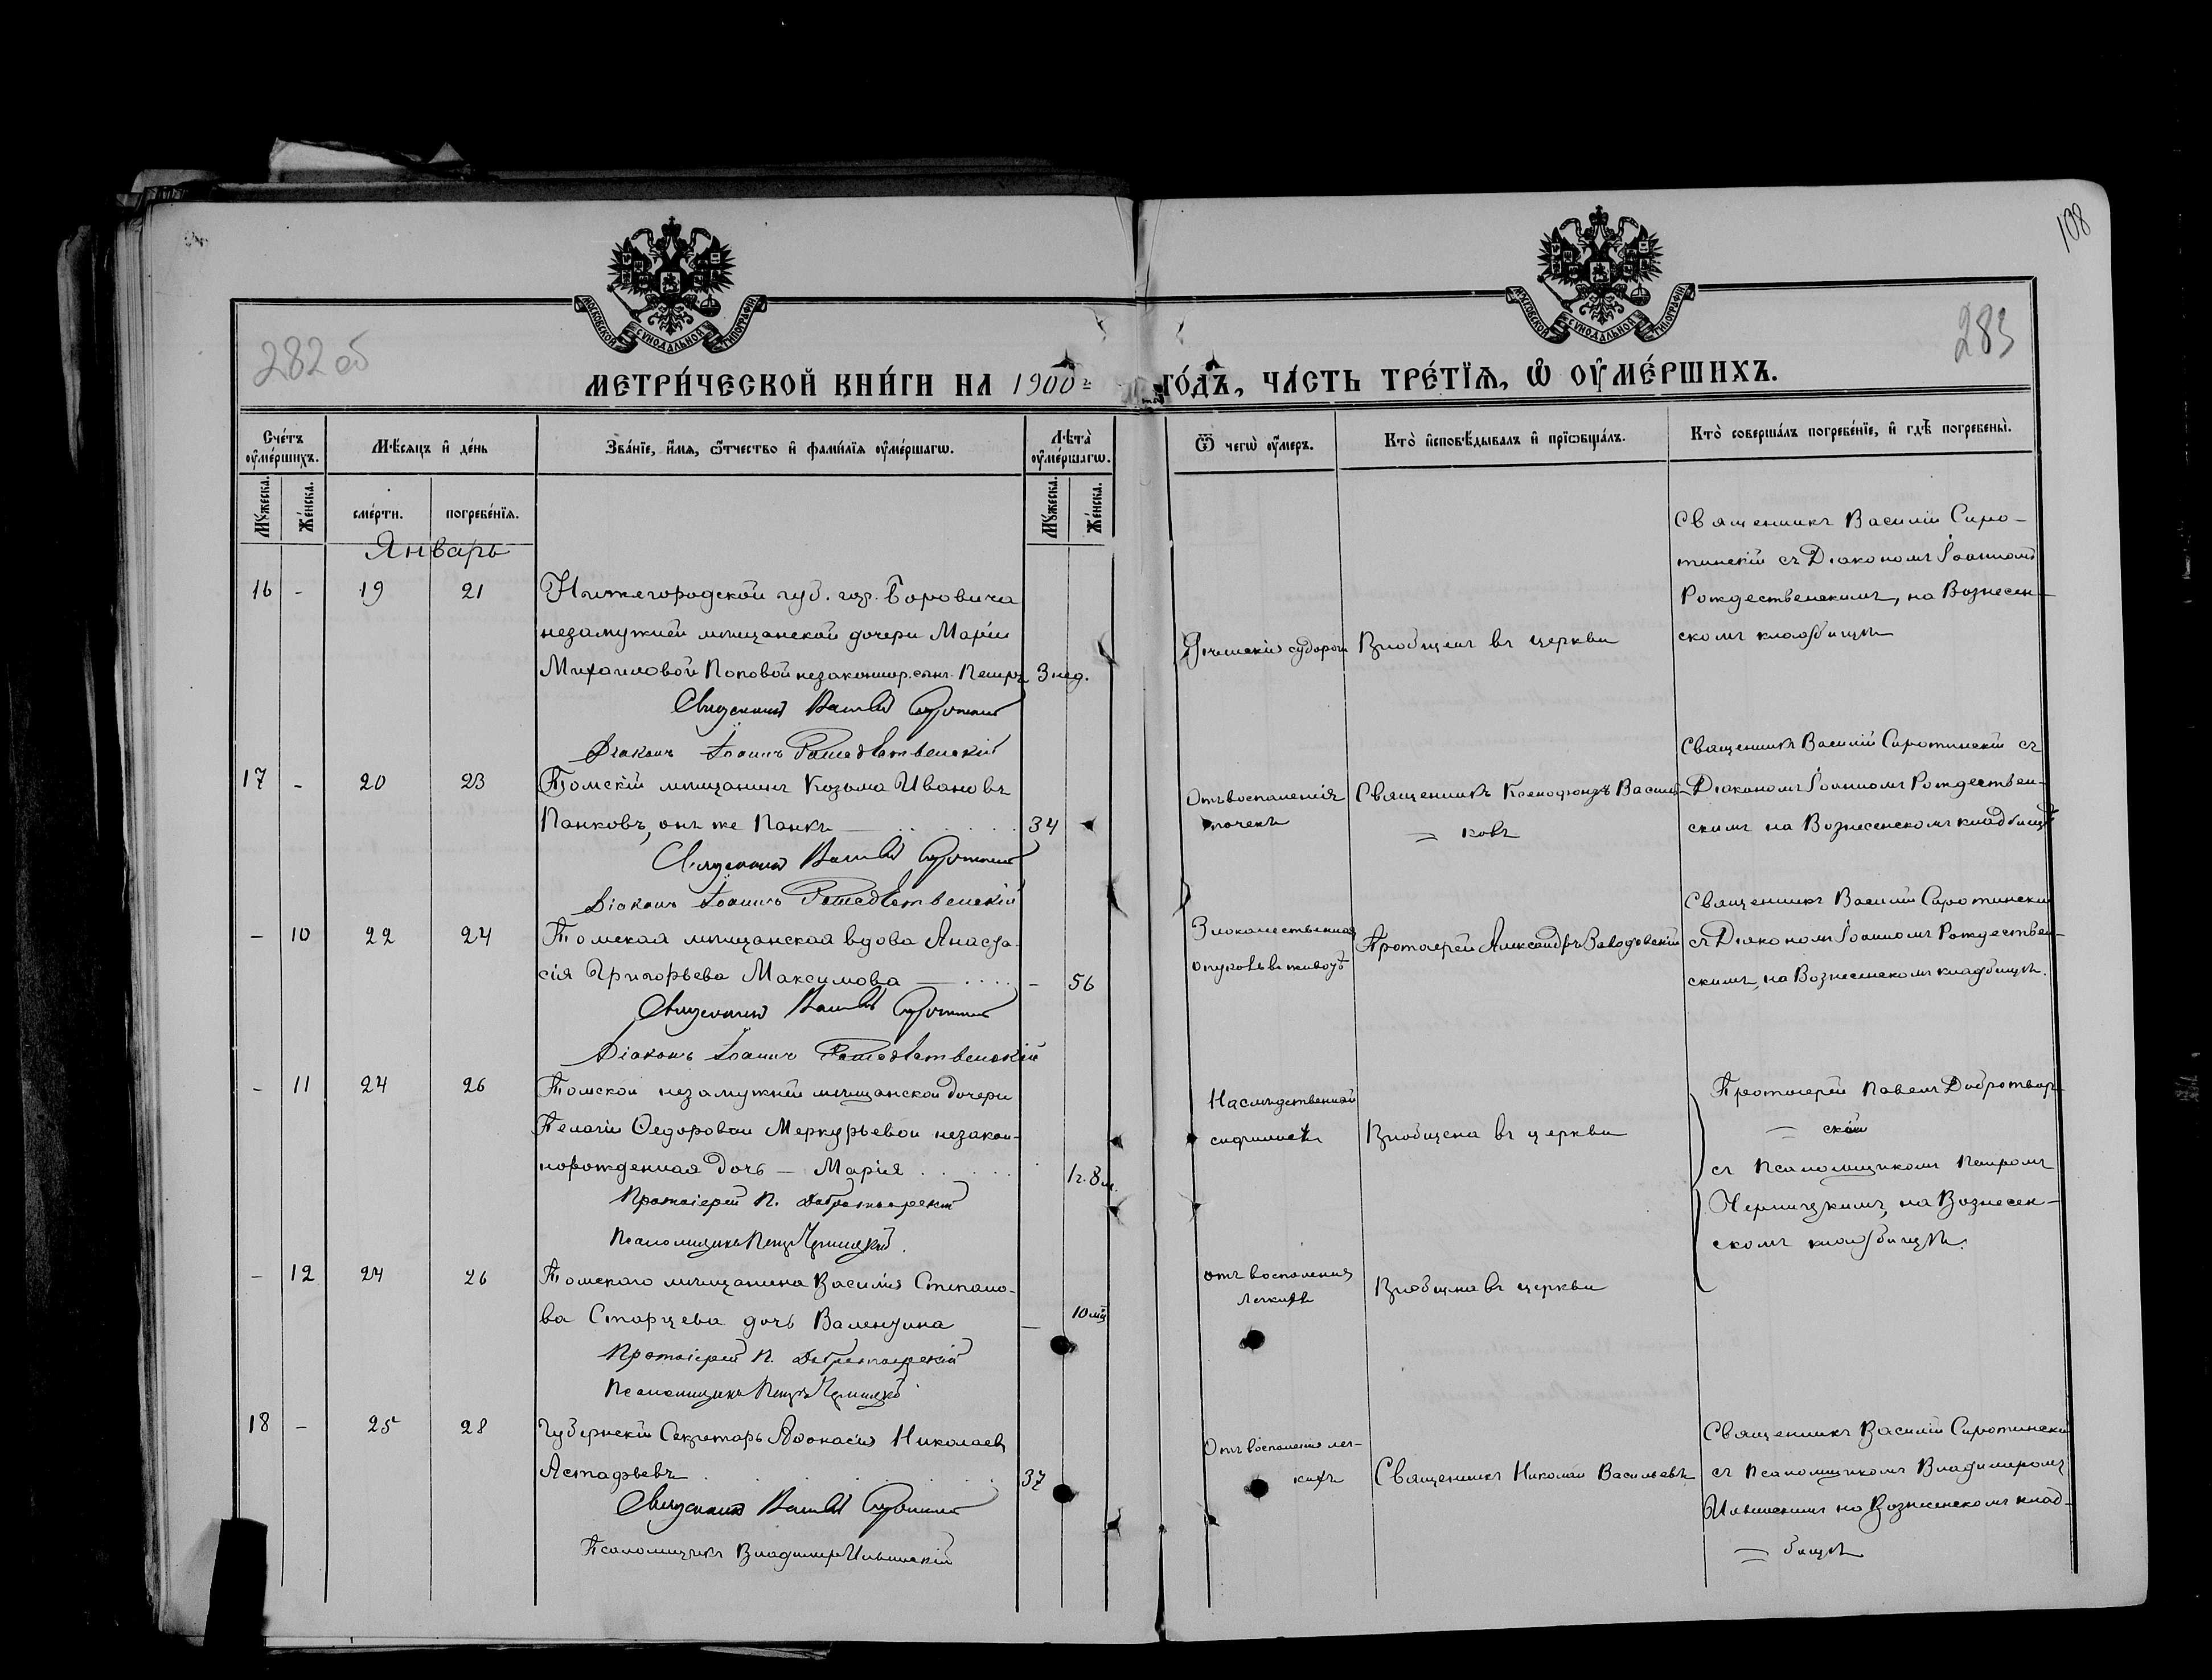 108
МОСКОВСКОЙ СУНОДАЛЬНОЙ ТИПОГРАФІИ
МОСКОВСКОЙ СУНОДАЛЬНОЙ ТИПОГРАФІИ
282 об
283
МЕТРИ́ЧЕСКОЙ КНИ́ГИ НА 1900 й ГО́ДЪ, ЧА́СТЬ ТРЕ́ТЇѦ, Ѡ҆ ОУ҆МЕ́РШИХЪ.
Сче́тъ оу҆ме́ршихъ.
Мѣ́сѧцъ и҆ де́нь
Зва́нїе, и҆́мѧ, ѻ҆́тчество и҆ фами́лїѧ оу҆ме́ршагѡ.
Лѣ́та оу҆ме́ршагѡ.
Ѿ чегѡ̀ оу҆́меръ.
Кто̀ и҆сповѣ́дывалъ и҆ прїѡбща́лъ.
Кто̀ соверша́лъ погребе́нїе, и҆ гдѣ̀ погребены̀.
Мꙋ́жеска.
Же́нска.
сме́рти.
погребе́нїѧ.
Мꙋ́жеска.
Же́нска.
Январь
16 - 19 21
Нижегородской губ. гор. Боровича
незамужней мѣщанской дочери Маріи
Михаиловой Поповой незаконнор. сынъ Петръ 3 нед.
Священникъ Василій Сиротинскій
Діаконъ Іоаннъ Рождественскій
судороги
Пріобщенъ въ церкви
Священникъ Василій Сиро-
тинскій съ Діакономъ Іоанномъ
Рождественскимъ, на Вознесен-
скомъ кладбищѣ
17 - 20 23
Томскій мѣщанинъ Козьма Ивановъ
Панковъ, онъ же Панкъ — 34
Священникъ Василій Сиротинскій
Діаконъ Іоаннъ Рождественскій
Отъ воспаленія
почекъ
Священникъ Ксенофонтъ Василь-
= ковъ
Священникъ Василій Сиротинскій съ
Діакономъ Іоанномъ Рождествен-
скимъ на Вознесенскомъ кладбищѣ
- 10 22 24
Томская мѣщанская вдова Анаста-
сія Григорьева Максимова — - 56
Священникъ Василій Сиротинскій
Діаконъ Іоаннъ Рождественскій
Злокачественная
опухоль въ животѣ
Протоіерей Александръ Заводовскій
Священникъ Василій Сиротинскій
съ Діакономъ Іоанномъ Рождествен-
скимъ, на Вознесенскомъ кладбищѣ.
- 11 24 26
Томской незамужней мѣщанской дочери
Пелагіи Ѳедоровой Меркурьевой незакон-
норожденная дочь — Марія 1 г. 8 м.
Протоіерей П. Добротворскій
Псаломщикъ Петръ Черницкій.
Наслѣдственный
сифилисъ
Пріобщена въ церкви
Протоіерей Павелъ Добротвор-
= скій
съ Псаломщикомъ Петромъ
Черницкимъ, на Вознесен-
скомъ кладбищѣ.
- 12 24 26
Томскаго мѣщанина Василія Степано-
ва Старцева дочь Валентина — 10 мѣ
Протоіерей П. Добротворскій
Псаломщикъ Петръ Черницкій
отъ воспаленія
легкихъ
Пріобщена въ церкви
18 - 25 28
Губернскій Секретарь Аѳонасій Николаевъ
Астафьевъ 37
Священникъ Василій Сиротинскій
Псаломщикъ Владимиръ Ильинскій
Отъ воспаленія лег-
кихъ
Священникъ Николай Васильевъ
Священникъ Василій Сиротинскій
съ Псаломщикомъ Владимиромъ
Ильинскимъ на Вознесенскомъ клад-
= бищѣ